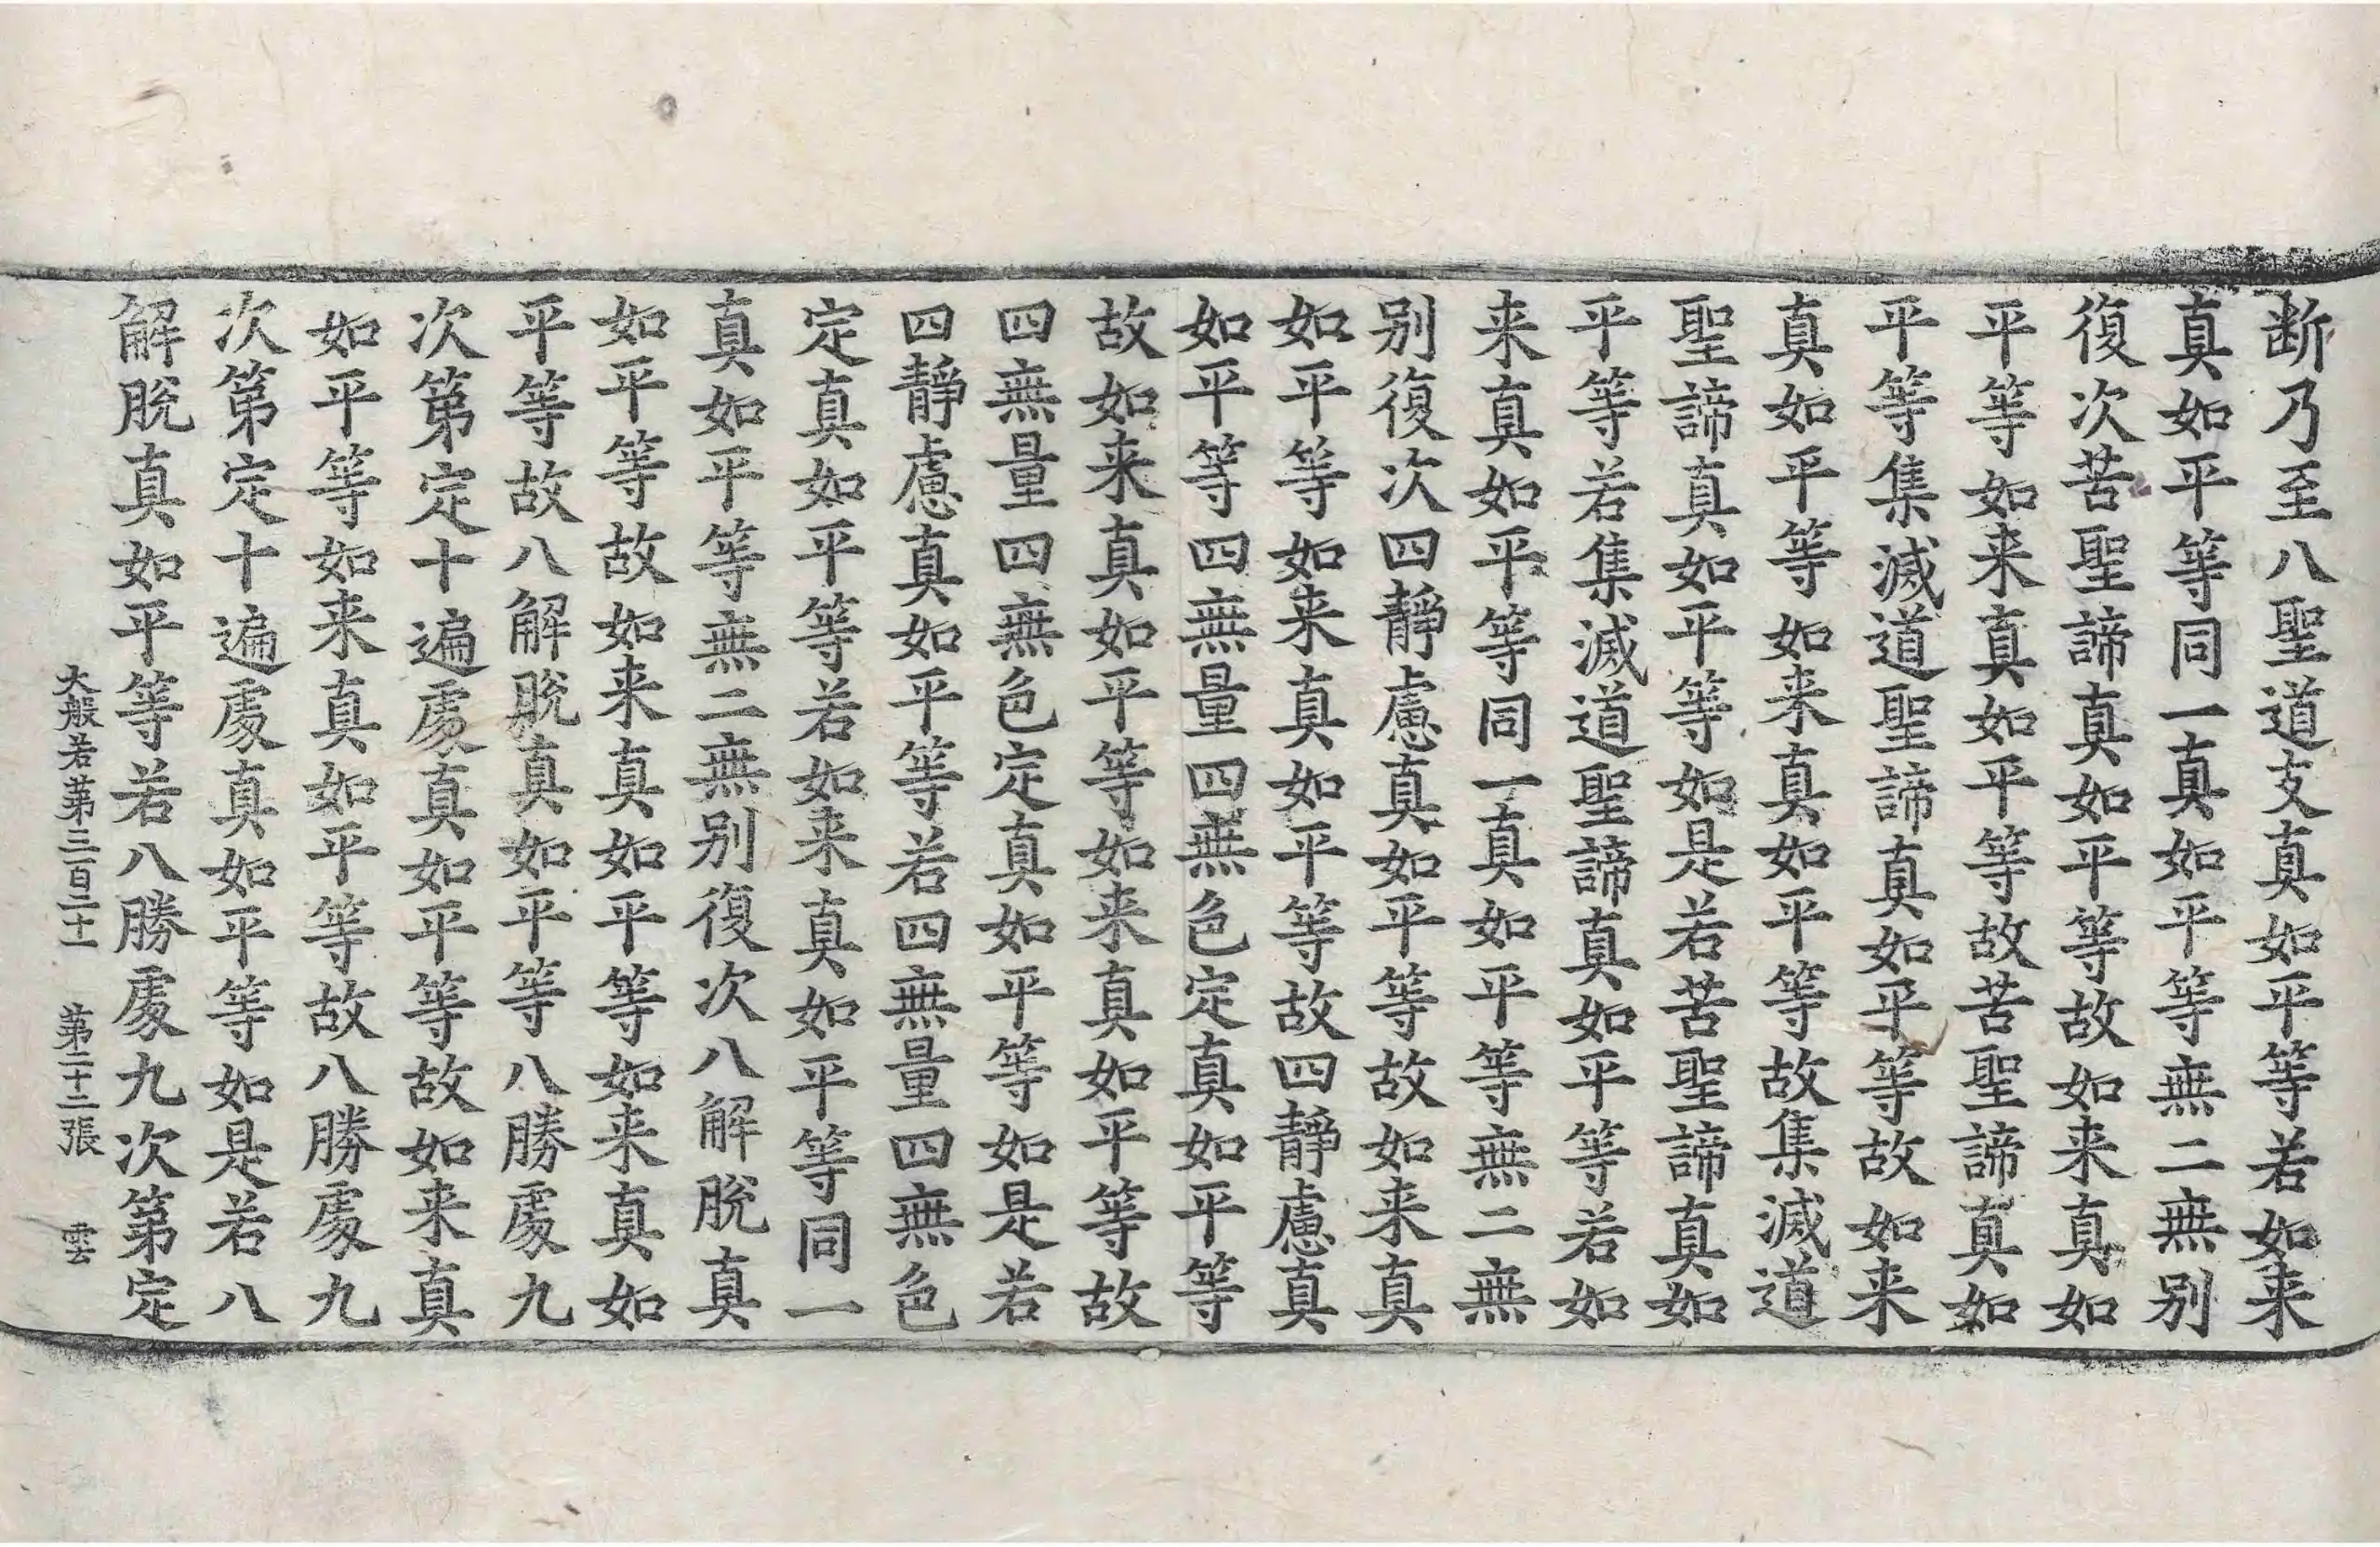 断乃至八聖道支真如平等若如来
真如平等同一真如平等無二無别
復次苦聖諦真如平等故如来真如
平等如来真如平等故苦聖諦真如
平等集滅道聖諦真如平等故如来
真如平等如来真如平等故集滅道
聖諦真如平等如是若苦聖諦真如
平等若集滅道聖諦真如平等若如
来真如平等同一真如平等無二無
别復次四靜慮真如平等故如来真
如平等如来真如平等故四靜慮真
如平等四無量四無色定真如平等
故如来真如平等如来真如平等故
四無量四無色定真如平等如是若
四靜慮真如平等若四無量四無色
定真如平等若如来真如平等同一
真如平等無二無别復次八解脫真
如平等故如来真如平等如来真如
平等故八解脫真如平等八勝處九
次第定十遍處真如平等故如来真
如平等如来真如平等故八勝處九
次第定十遍處真如平等如是若八
解脫真如平等若八勝處九次第定
大般若第三百二十一 第二十二張 雲